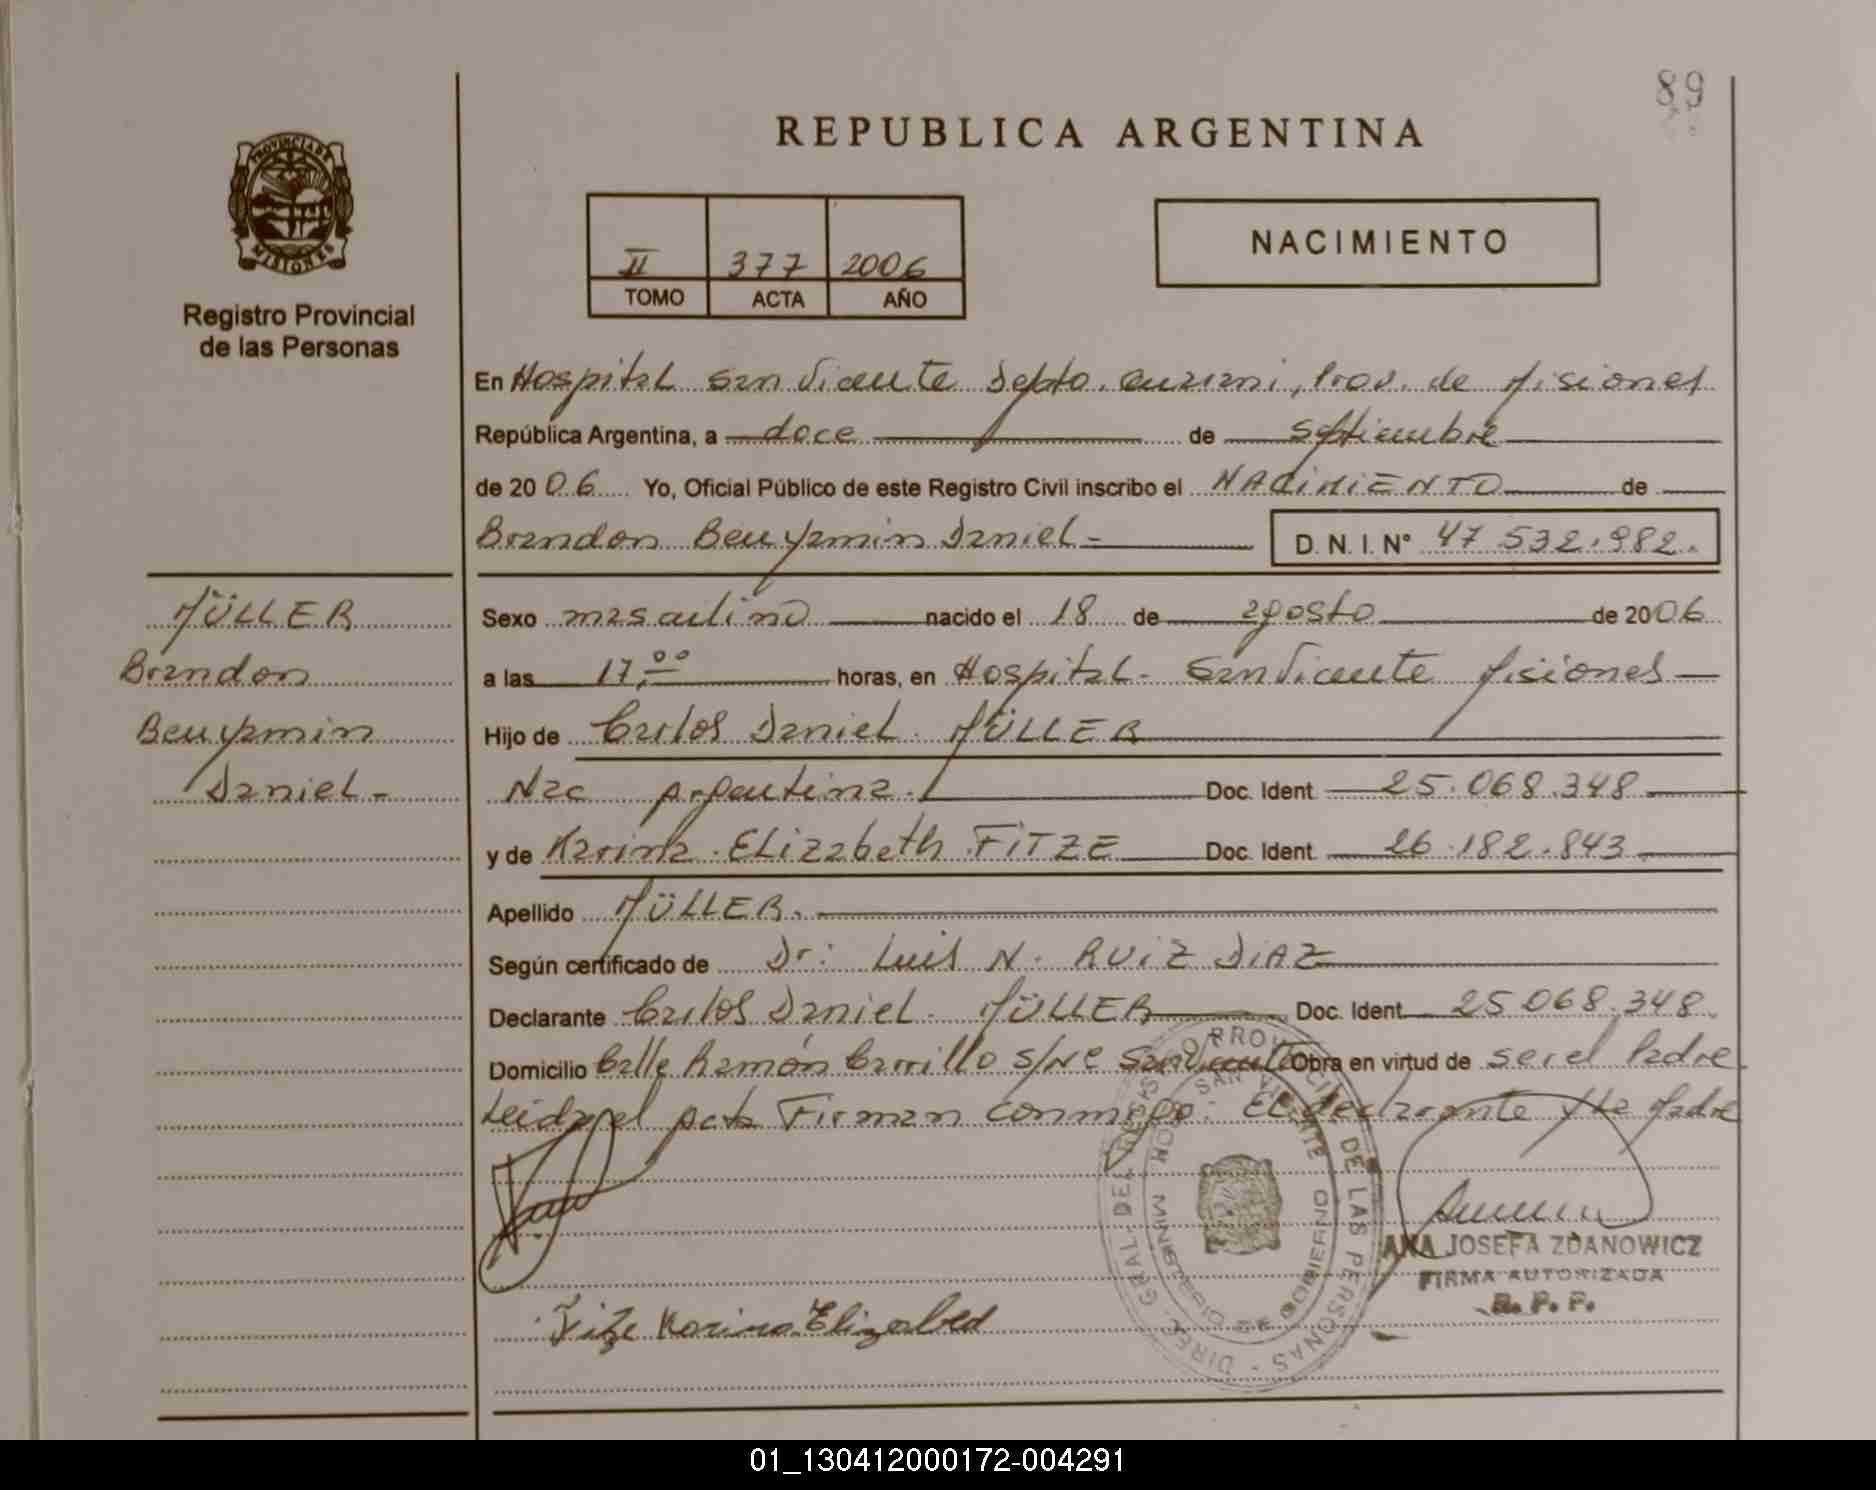 89
REPUBLICA ARGENTINA
PROVINCIA DE
MISIONES
Registro Provincial
de las Personas
II 377 2006
TOMO ACTA AÑO
NACIMIENTO
En Hospital San Vicente Depto. Guaraní, Prov. de Misiones
República Argentina, a doce de septiembre
de 2006 Yo, Oficial Público de este Registro Civil inscribo el NACIMIENTO de
Brandon Benyamin Daniel- D. N. I. N° 47 532.982.
MÜLLER
Brandon
Benyamin
Daniel-
Sexo masculino nacido el 18 de agosto de 2006
a las 17,00 horas, en Hospital- San Vicente Misiones
Hijo de Carlos Daniel MÜLLER
Nac Argentina. Doc. Ident 25.068.348
y de Karina Elizabeth FITZE Doc. Ident 26.182.843
Apellido MÜLLER.
Según certificado de Dr: Luis N. RUIZ DIAZ
Declarante Carlos Daniel MÜLLER Doc. Ident. 25.068.348.
Domicilio Calle Ramón Carrillo s/Nº San Vicente Obra en virtud de ser el Padre
Leida el acta Firman conmigo: El declarante y la Madre
DIREC. GRAL. DEL REGISTRO PROVINCIAL DE LAS PERSONAS
HOSP. SAN VICENTE
MINISTERIO DE GOBIERNO
ANA JOSEFA ZDANOWICZ
FIRMA AUTORIZADA
R. P. P.
Fitze Karina Elizabed
01_130412000172-004291